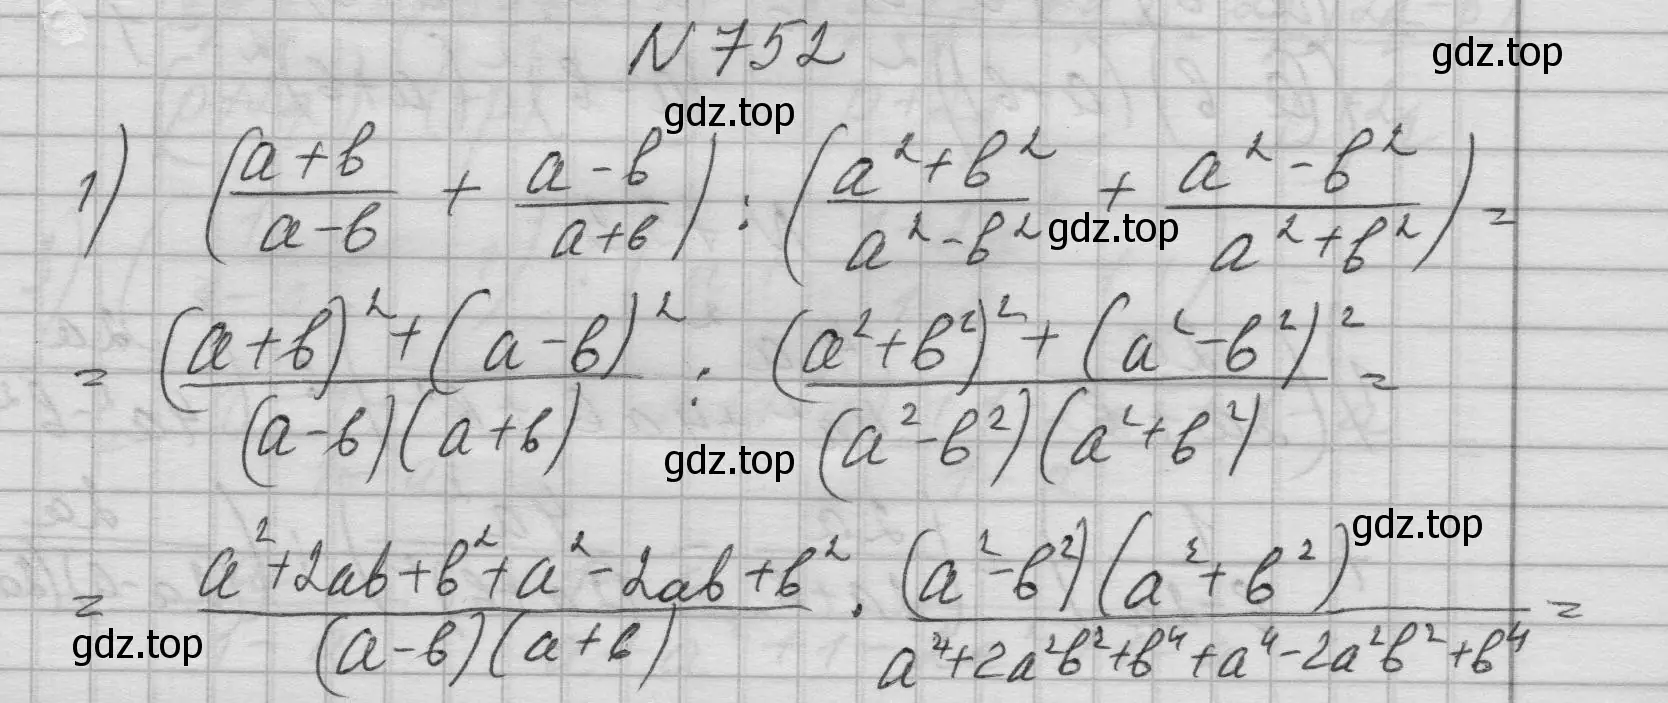 N 752
gdz.top
gdz.top
1) ((a+b)/(a-b) + (a-b)/(a+b)) : ((a²+b²)/(a²-b²) + (a²-b²)/(a²+b²)) =
gdz.top
= ((a+b)²+(a-b)²)/((a-b)(a+b)) : ((a²+b²)²+(a²-b²)²)/((a²-b²)(a²+b²)) =
gdz.top
gdz.top
= (a²+2ab+b²+a²-2ab+b²)/((a-b)(a+b)) · ((a²-b²)(a²+b²))/(a⁴+2a²b²+b⁴+a⁴-2a²b²+b⁴) =
gdz.top